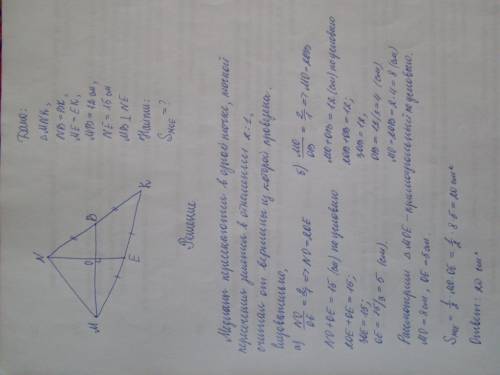 Дано:
△MNK,
NB=BK,
ME=EK,
MB=12 см,
NE=15 см
MB⊥NE
Найти:
S_MOE = ?
N
K
B
O
E
M
Решение
Медианы пересекаются в одной точке, которой
пересечения делятся в отношении 2:1,
считая от вершины из которой проведена.
а) NO/OE = 2/1 => NO=2OE
NO+OE=15 (см) по условию
2OE+OE=15;
3OE=15;
OE=15/3=5 (см)
б) MO/OB = 2/1 => MO=2OB
MO+OB=12 (см) по условию
2OB+OB=12;
3OB=12,
OB=12/3=4 (см)
MO=2OB=2·4=8 (см)
Рассмотрим △MOE-прямоугольный по условию.
MO=8 см, OE=5 см.
S_MOE = 1/2 · MO · OE = 1/2 · 8 · 5 = 20 см²
Ответ: 20 см²